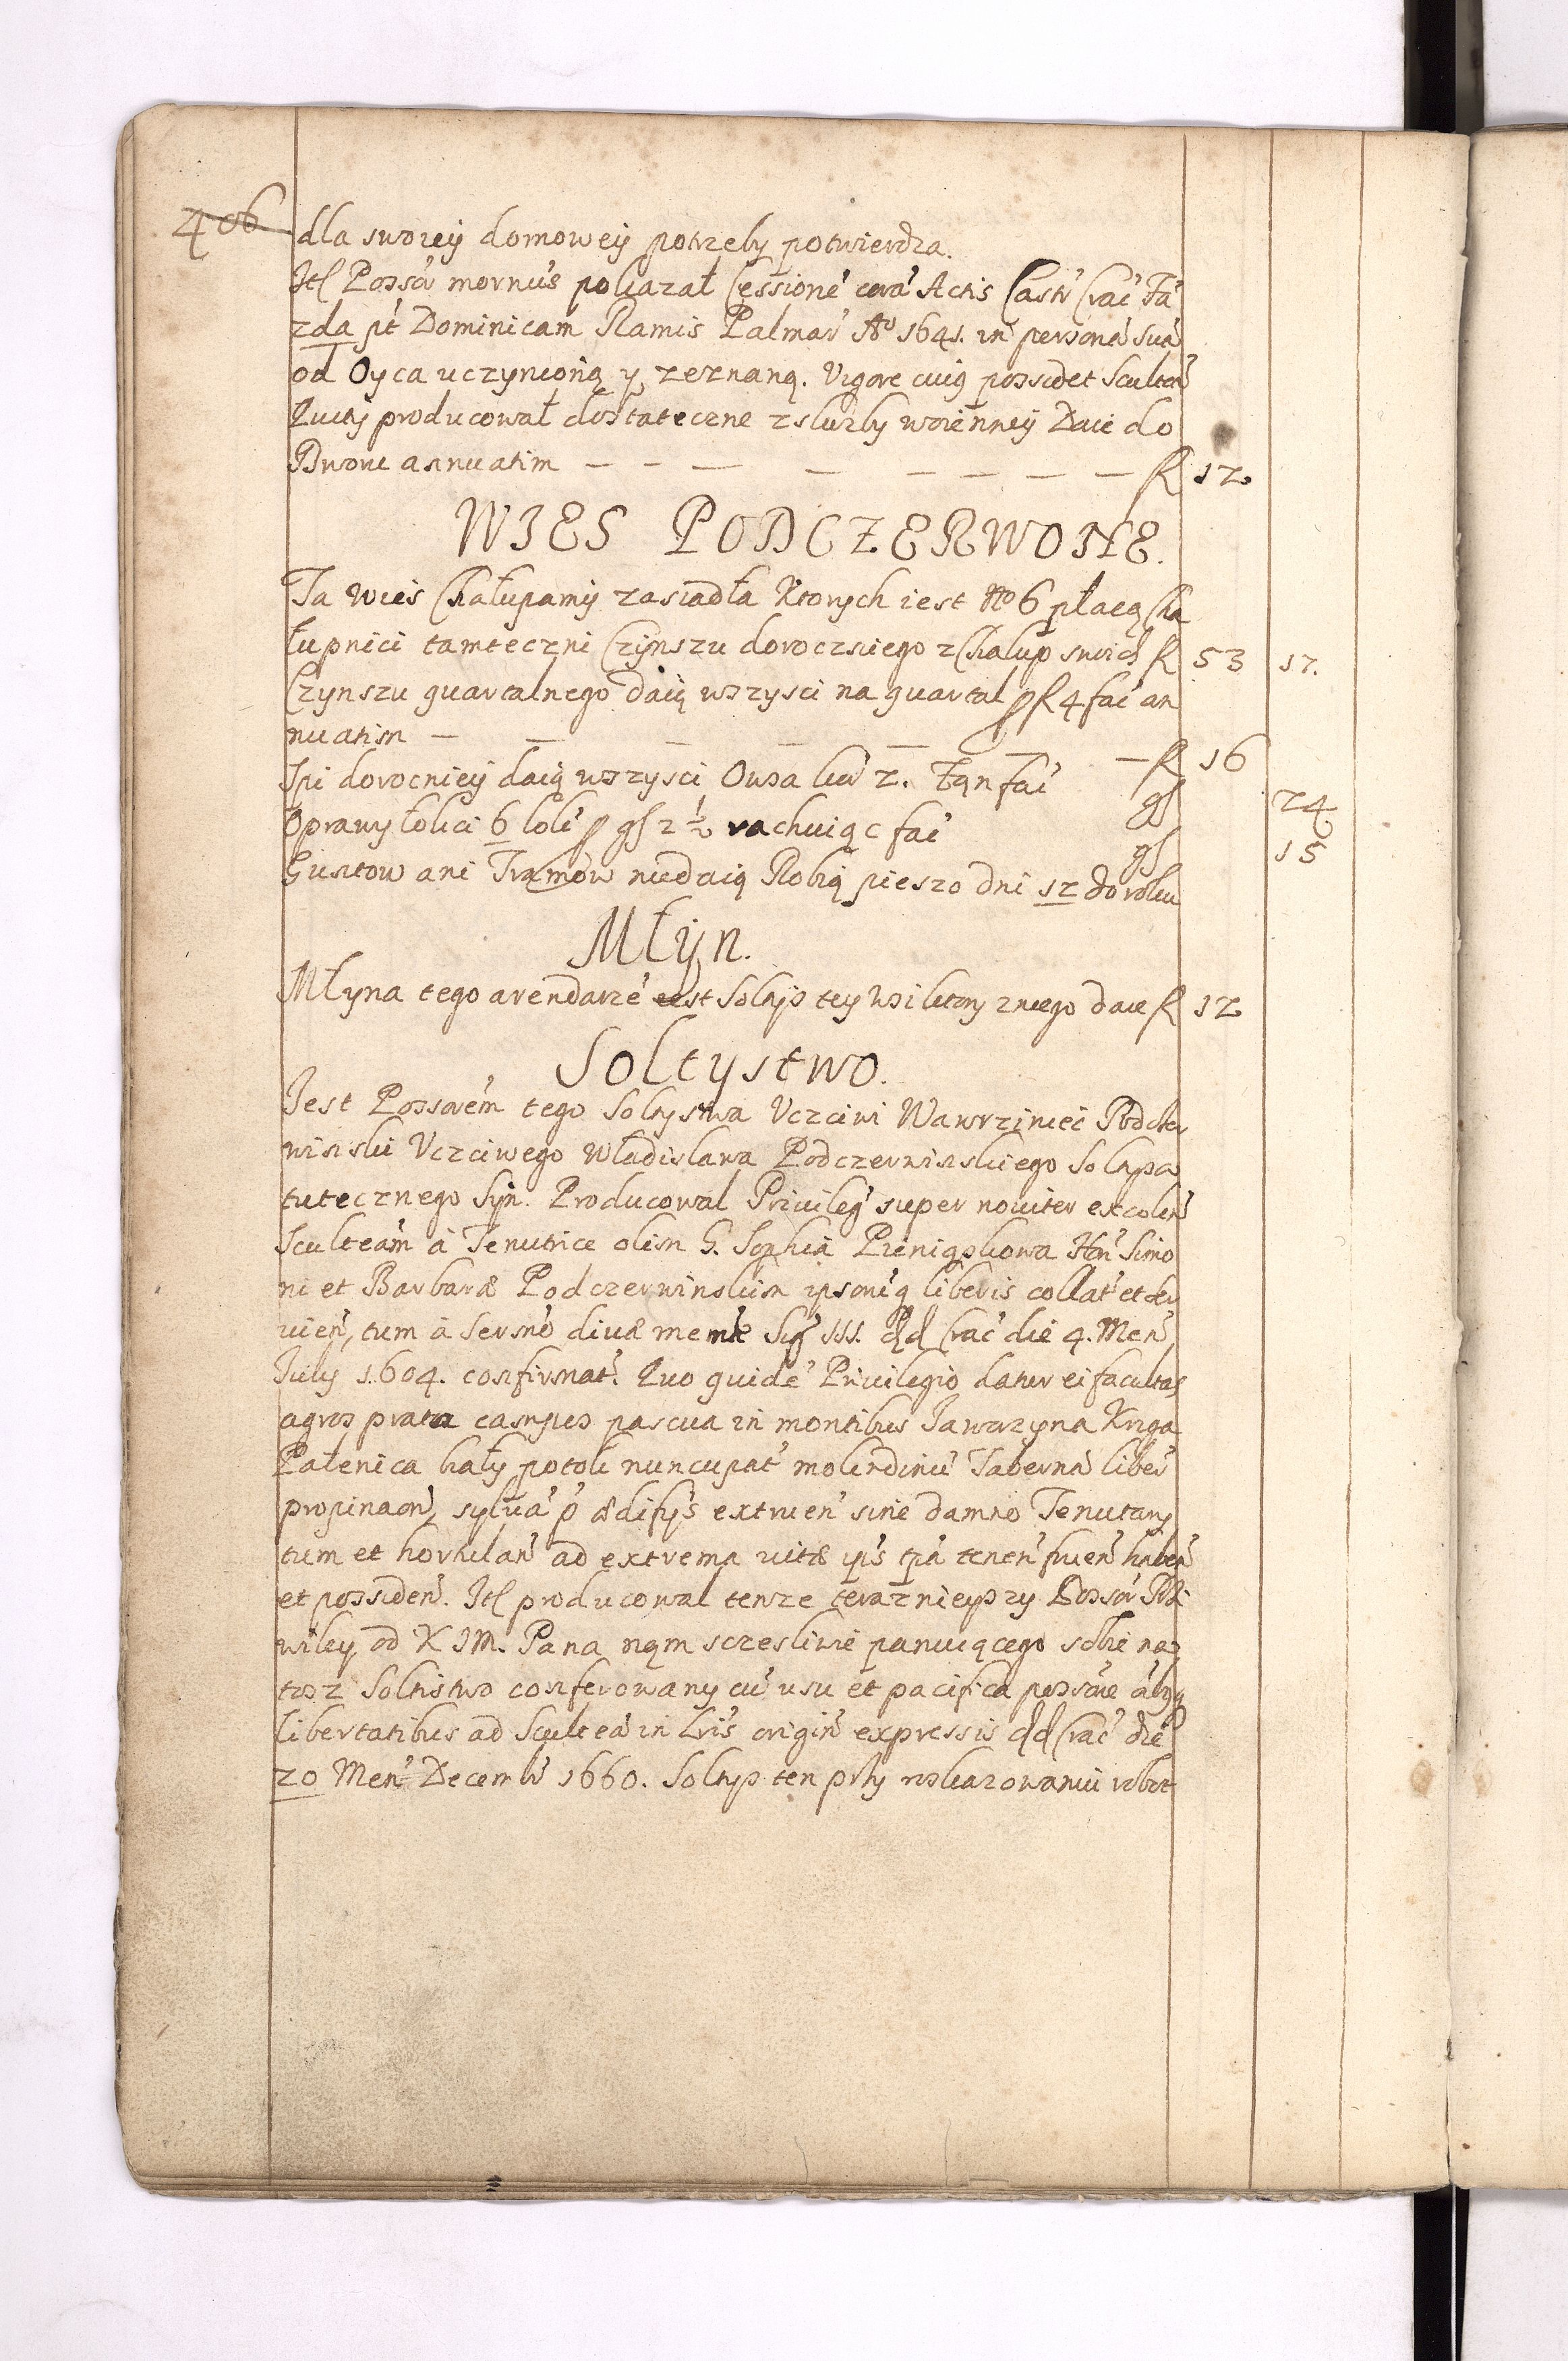 406
dla swoiey domowey potrzeby potwierdza.
Itl Possor mornus pokazał Cessione cora Actis Castr Crac Fa
zda pt Dominicam Ramis Palmar Ao 1641. in persona sua
od Oyca uczynioną y zeznaną. Vigore cuig possidet Sculten
Quity producował dostateczne z sluzby woienney Daie do
Dworu annuatim — — — — — — — — fl 12.
WIES PODCZERWONE.
Ta wies Chałupamy zasiadła Ktorych iest No 6 płacą Cha
łupnici tamteczni Czynszu doroczniego z Chalup swich fl 53 17.
Czynszu quartalnego daią wszysci na quartal p fl 4 fac an
nuatim — — — — — — — fl 16
Ipi doroczniey daią wszysci Owsa 2. fac gl 24
Oprawy łokci 6 p gl 2 ½ rachuiąc fac gl 15
Gusitow ani Tramow niedaią Robią pieszo dni 12 do roku
Młyn.
Młyna tego arendarze iest Soltys tey wsi ktory z niego daie fl 12
Soltystwo.
Jest Possorem tego Soltystwa Vczciwi Wawrziniec Podcher
winski Vczciwego Władislawa Podczerwinskiego Soltysa
tutecznego Syn. Producowal Privileg super noviter excolen
Sculteam à Tenutrice olim G. Sophia Pieniąskowa Hon Simo
ni et Barbaræ Podczerwinskim ipsorūq liberis collat et ser
vien, tum à Sermo divæ Sig III. dd Crac die 4. Men
July 1604. confirmat. Quo quidē Privilegio datur ei facultas
agros prata campos pascua in montibus Jaworzyna Kriga
Palenica hały potok nuncupat molendinū Taberna liber
propinaon, sylva p ædifijs extruen sine damno Tenutary
tum et hortulan ad extrema vitæ ips tpā tenen fruen haben
et possiden. Itl producowal tenze terazniejszy Possor Pri
wiley od K JM. Pana nąm sczesliwie panuiącego sobie na
toz Soltistwo conferowany cū usu et pacifica possōie
libertatibus ad Scultea in Lris origin expressis dd Crac die
20 Men Decemb 1660. Soltys ten przy robot